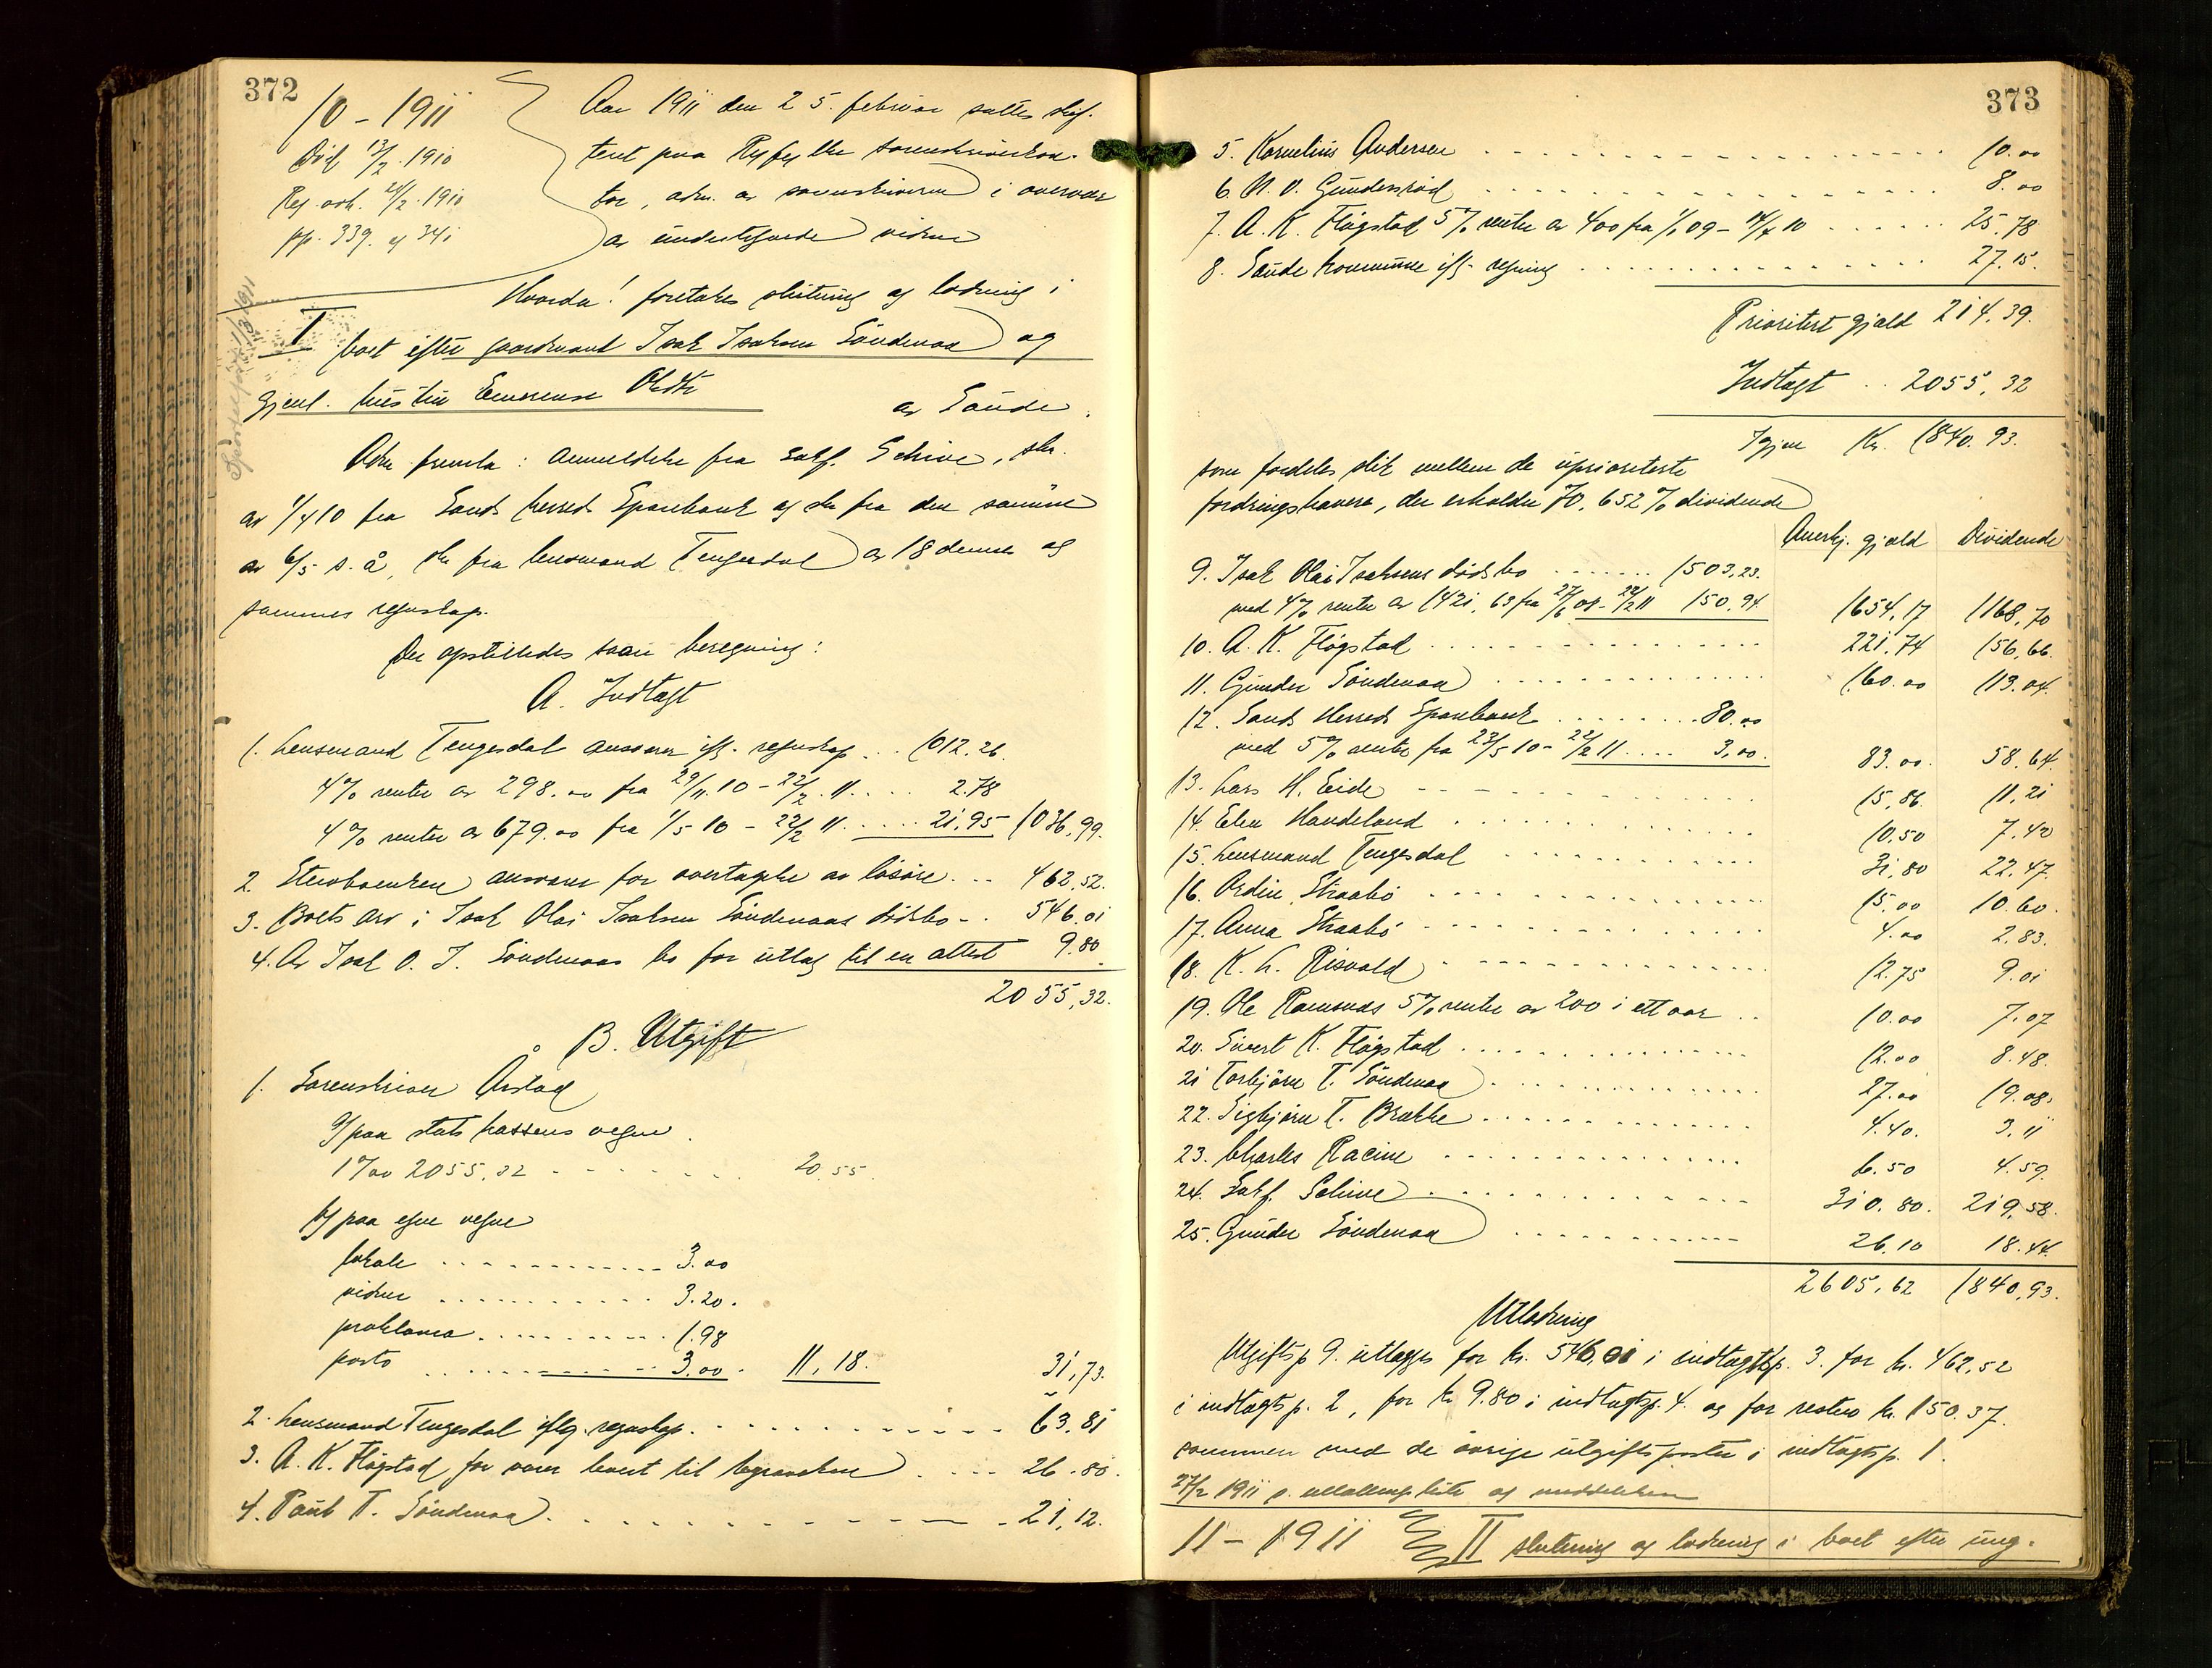 372
10 - 1911
Död 13/2 1910
Reg. prk. 24/2 1910
pp. 339 og 341
Aar 1911 den 25. februar sattes skif-
teret paa Ryfylke sorenskriverkon-
tor, adm. av sorenskriveren i overvær
av undertegnede vidner
Hvorda! foretokes slutning og lodning i
I boet efter gaardmand Isak Isaksen Söndenaa og
gjenl. hustru Emerense Oldtr
av Saude.
Adm. fremla: anmeldelse fra sakf. Schive, skr.
av 1/4 10 fra Sands herreds Sparebank og skr fra den samme
av 6/5 s. å, skr fra lensmand Tengesdal av 18 dennes og
sammes regnskap.
Der opstilledes saan beregning:
A. Indtægt
1. Lensmand Tengesdal ansvarer ifl. regnskap ... 1012.26
4% renter av 298.00 fra 29/11.10 - 22/2.11 .... 2.78
4% renter av 679.00 fra 1/5 10 - 22/2 11 ..... 21.95 1036,99.
2. Stervboenken ansvarer for overtagelse av lösöre ... 462,52.
3. Boets arv i Isak Olai Isaksen Söndenaas dödsbo - . 546.01
4. Av Isak O. I. Söndenaas bo for utlæg til en attest 9.80
2055,32.
B. Utgift
1. Sorenskriver Årstad
a/ paa statskassens vegne.
1% av 2055,32 ....... 20.55.
b/ paa egne vegne
lokale ............ 3.00
vidner .......... 3.20.
proklama .......... 1.98
porto .......... 3.00. 11,18. 31,73.
2. Lensmand Tengesdal iflg. regnskap. .......... 63.81
3. A. K. Flögstad for varer levert til begravelsen .... 26.80.
4. Paul T. Söndenaa ............ 21,12.
373
5. Kornelius Andersen ............ 10.00
6. N. O. Gundersröd ............ 8.00
7. A. K. Flögstad 5% renter av 400 fra 1/1 09 - 14/4 10 ...... 25.78
8. Saude kommune ifl. regning ............ 27.15.
Prioritert gjæld 214.39.
Indtægt .. 2055,32
Igjen Kr. 1840.93.
som fordeles slik mellem de uprioriterte
fordringshavere, der erholder 70,652% dividende
Anerkj. gjæld Dividende
9. Isak Olai Isaksens dödsbo ....... 1503,23.
med 4% renter av 1421,63 fra 27/6 08 - 22/2 11 150.94. 1654,17 1168,70
10. A. K. Flögstad ............ 221,74 156,66.
11. Gunder Söndenaa ............ 160.00 113.04.
12. Sands Herreds Sparebank ........ 80.00
med 5% renter fra 23/5 10 - 22/2 11 .... 3,00. 83.00. 58.64.
13. Lars H. Eide ............ 15,86. 11,21
14. Elen Handeland ............ 10,50 7.42
15. Lensmand Tengesdal ............ 31,80 22.47.
16. Ordin Straabö ............ 15.00 10.60.
17. Anna Straabö ............ 4.00 2.83.
18. K. L. Risvold ............ 12.75 9.01
19. Ole Ramsnæs 5% renter av 200 i ett aar .. 10.00 7.07
20. Sivert K. Flögstad ............ 12.00 8.48.
21 Torbjörn T. Söndenaa ............ 27.00 19.08.
22. Sigbjörn T. Brække ............ 4.40. 3.11
23. Charles Racine ............ 6.50 4.59.
24. Sakf. Schive ............ 310.80. 219,58.
25. Gunder Söndenaa ............ 26.10 18.44.
2605,62 1840,93.
Utlodning
Utgiftsp 9. utlægges for kr. 546,01 i indtægtsp. 3. for kr. 462,52
i indtægtsp. 2, for kr 9.80 i indtægtsp. 4. og for resten kr. 150.37.
sammen med de övrige utgiftsposter i indtægtsp. 1.
27/2 1911 s. utlodningsliste og meddelelser
11 - 1911 II slutning og lodning i boet efter ung-